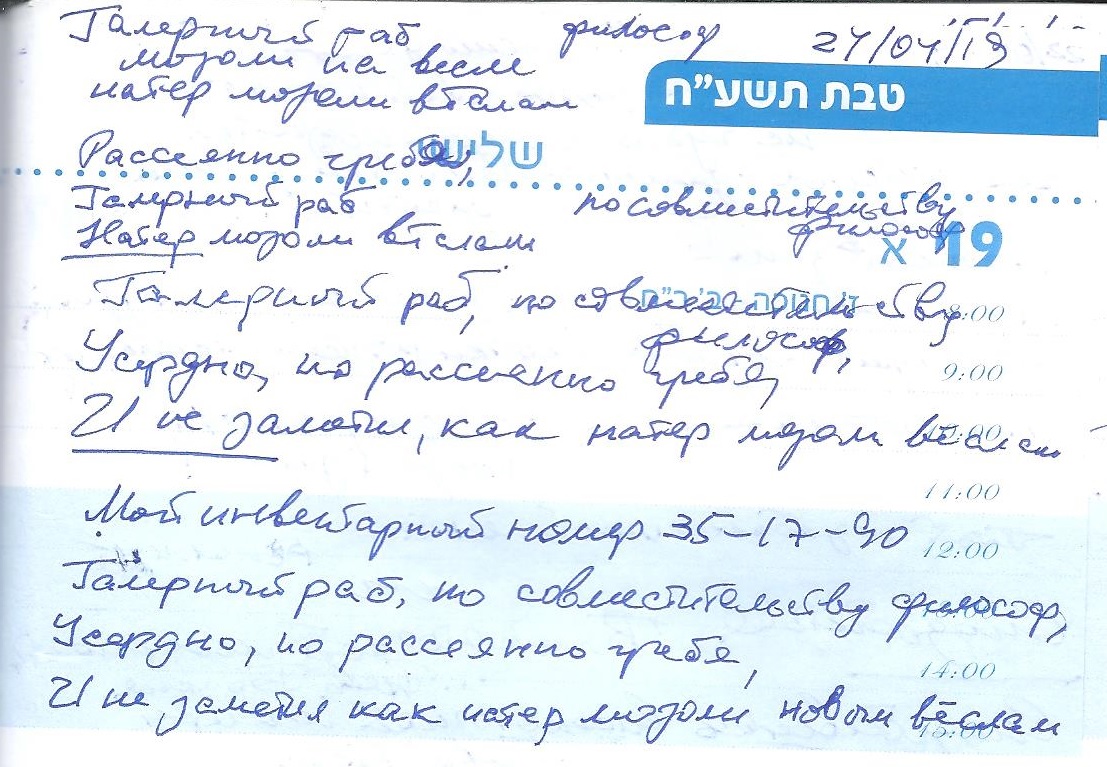 Галерный раб философ 24/04/19
мозоли на весле
натер мозоли вёслам
טבת תשע״ח
Рассеянно гребя,
שלישי
Галерный раб по совместительству
философ
Натер мозоли вёслам
19 א
Галерный раб, по совместительству
8:00
философ,
Усердно, но рассеянно гребя,
9:00
И не заметил, как натер мозоли вёслам
10:00
11:00
Мой инвентарный номер 35-17-90
12:00
Галерный раб, по совместительству философ,
13:00
Усердно, но рассеянно гребя,
14:00
И не заметил как натер мозоли новым вёслам
15:00